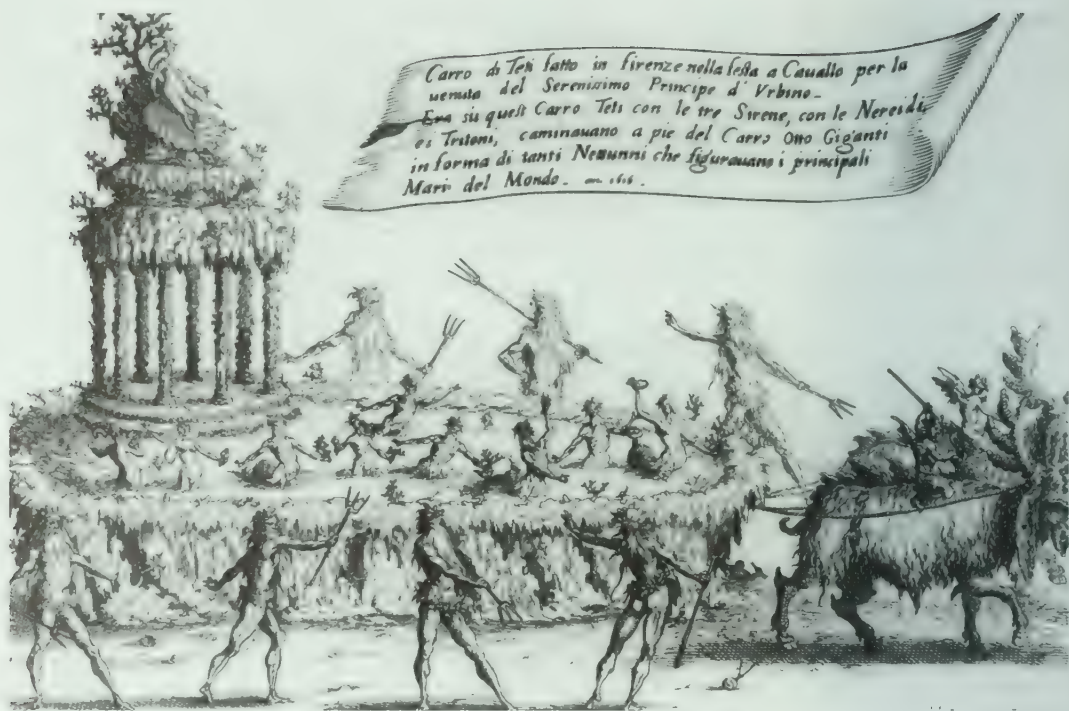 Carro di Teti fatto in firenze nella festa a Cauallo per la
uenuta del Serenissimo Principe d' Vrbino.
Era sù quest Carro Teti con le tre Sirene, con le Nereidi,
et Tritoni, caminauano a pie del Carro Otto Giganti
in forma di tanti Nettunni che figurauano i principali
Mari del Mondo.